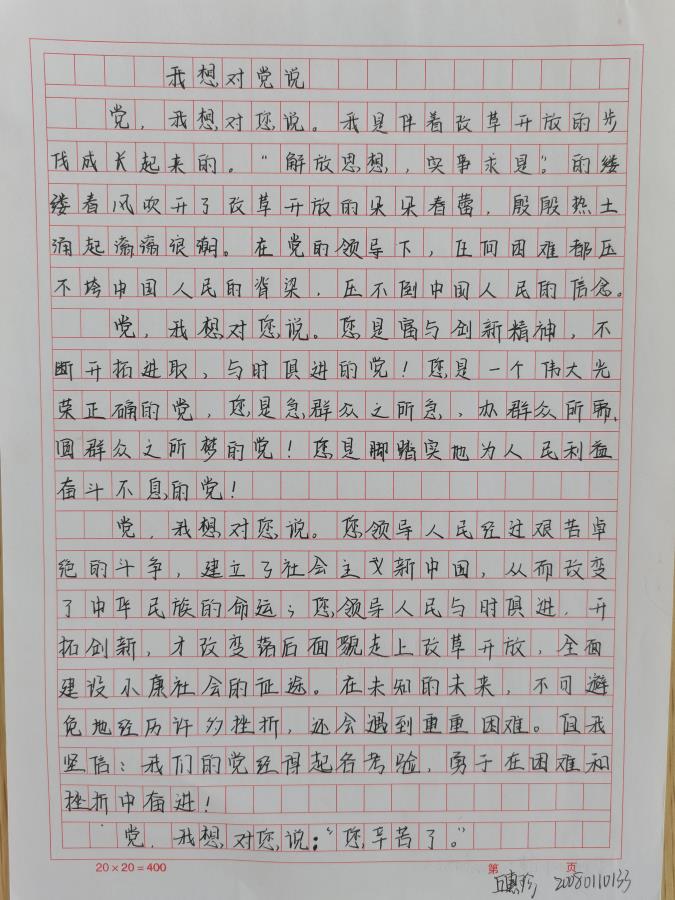 我想对党说
党，我想对您说。我是伴着改革开放的步
伐成长起来的。“解放思想，实事求是”。的缕
缕春风吹开了改革开放的朵朵春蕾，殷殷热土
涌起滴滴浪潮。在党的领导下，任何困难都压
不垮中国人民的脊梁，压不倒中国人民的信念。
党，我想对您说。您是富与创新精神，不
断开拓进取、与时俱进的党！您是一个伟大光
荣正确的党，您是急群众之所急、办群众所需、
圆群众之所梦的党！您是脚踏实地为人民利益
奋斗不息的党！
党，我想对您说。您领导人民经过艰苦卓
绝的斗争，建立了社会主义新中国，从而改变
了中华民族的命运；您领导人民与时俱进，开
拓创新，才改变落后面貌走上改革开放，全面
建设小康社会的征途。在未知的未来，不可避
免地经历许多挫折，还会遇到重重困难。但我
坚信：我们的党经得起各考验，勇于在困难和
挫折中奋进！
党，我想对您说：“您辛苦了。”
20×20=400 第 页
丘惠珍 20080110133